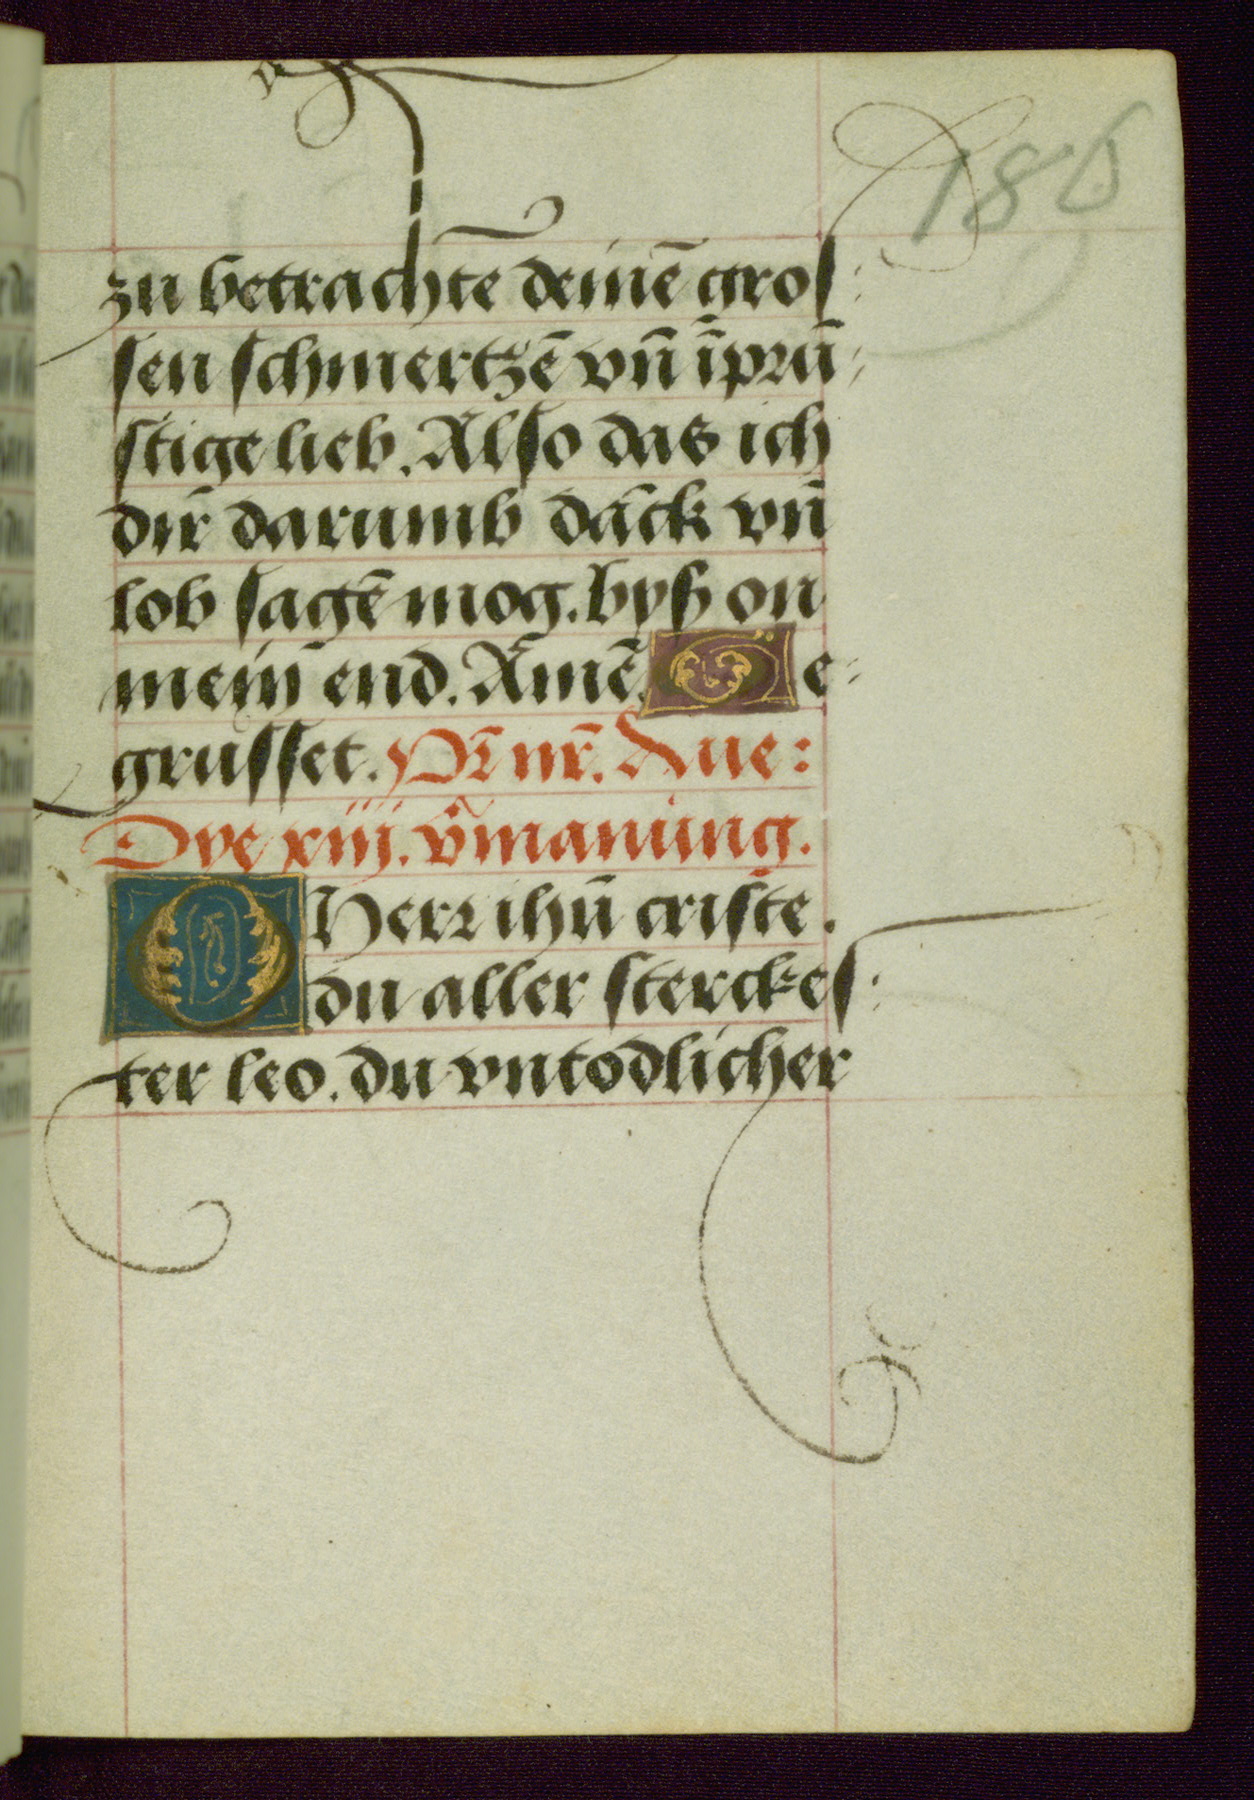 186
zu betrachtē deinē groſ
ſen ſchmertzē vn̄ īprū
ſtige lieb. Alſo das ich
dir darumb dāck vn̄
lob ſagē mog. byſz on
mein̄ end. Amē. Ge
gruſſet. Pr̄ nr̄. Aue:
Dye xiij. v̄manūng.
O Herr ihū criſte.
du aller ſterckeſ
ter leo. du vntodlicher